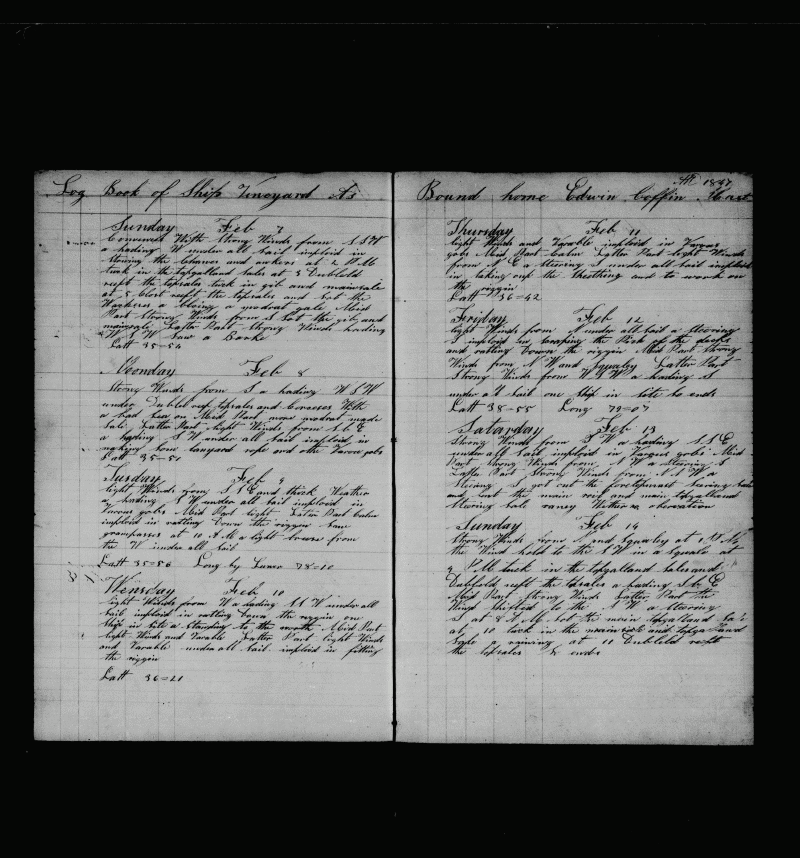 Log Book of Ship Vineyard As
Sunday Feb 7
Comences With Strong Winds from S S W
a hading W under all sail imploid in
stoing the and ankers at 2 P M
took in the topgalland sales at 3 Dubbleld
reeft the topsales took in gib and mainsale
at 8 Clost reeft the topsales and
a bloing a modrat gale Mid
Part Strong Winds from S Sot the gib and
mainsale Latter Part Strong Winds hading
W S W Saw a
Latt 35=54
Monday Feb 8
Strong Winds from S a hading W S W
under Dubbel reef topsales and Corses With
a bad Sea on Mid Part more modrat made
Sale Latter Part light Winds from S b E
a hading S W under all sail imploid in
making some lanyard rope and othe Varos jobs
Latt 35=51
Tusday Feb 9
light Winds from S E and thick Weather
a hading S W under all sail imploid in
Varous jobs Mid Part light Later Part Calm
imploid in ratling Down the riggin Saw
grampuses at 10 A M a light breese from
the W under all sail
Latt 35=56 Long by Luner 78=10
Wensday Feb 10
light Winds from W a hading S S W under all
sail imploid in ratling Down the riggin one
Ship in Site a Standing to the north Mid Part
light Winds and Varable Latter Part light Winds
and Varable under all sail imploid in fitting
the riggin
Latt 36=21
1847
Bound home Edwin Coffin Mast
Thursday Feb 11
light Winds and Varable imploid in Varous
jobs Mid Part Calm Latter Part light Winds
from S E a steering S under all sail imploid
in taking out the and to work on
the riggin
Latt 36=42
Friday Feb 12
light Winds from N under all sail a Steering
S imploid in Scraping the Pitch of the decks
and ratling Down the riggin Mid Part Strong
Winds from N W and Squaley Latter Part
Strong Winds from W S W a hading S
under all sail one Ship in Site So ends
Latt 38=55 Long 79=07
Saturday Feb 13
Strong Winds from S W a hading S S E
under all sail imploid in Varous jobs Mid
Part Strong Winds from N W a Steering S
Latter Part Strong Winds from N W a
Steering S got out the foretopmast Stering Sale
and bent the main roil and main topgalland
Stering Sale raney Wether no obsrvation
Sunday Feb 14
Strong Winds from N and Squaley at 1 P M
the Wind hold to the S W in a Squale at
2 P M took in the topgalland sales and
Dubbleld reeft the topsales a hading S b E
Mid Part Strong Winds Latter Part the
Wind Shifted to the N W a Steering
S at 8 A M Sot the main topgalland Sale
at 10 took in the main and topgalland
Sale a raining at 11 Dubbleld reeft
the topsales So ends